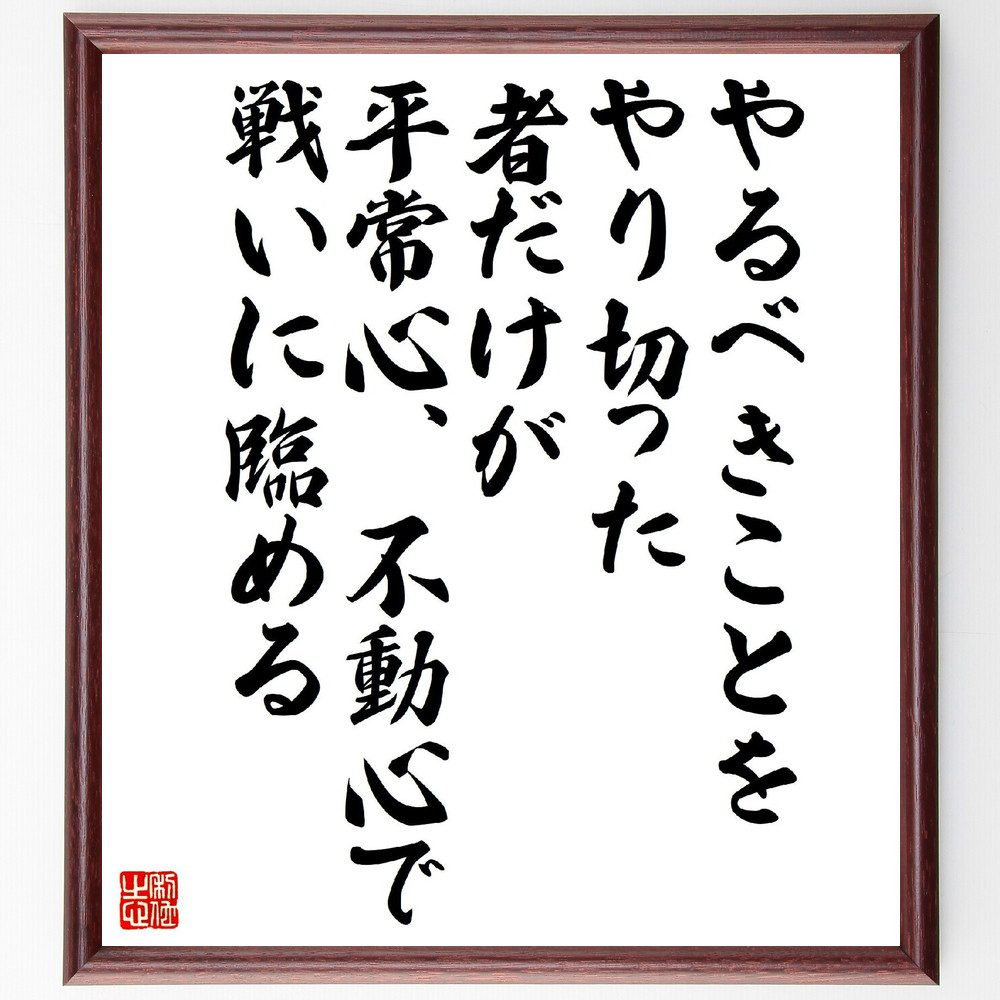 やるべきことを
やり切った
者だけが
平常心、不動心で
戦いに臨める